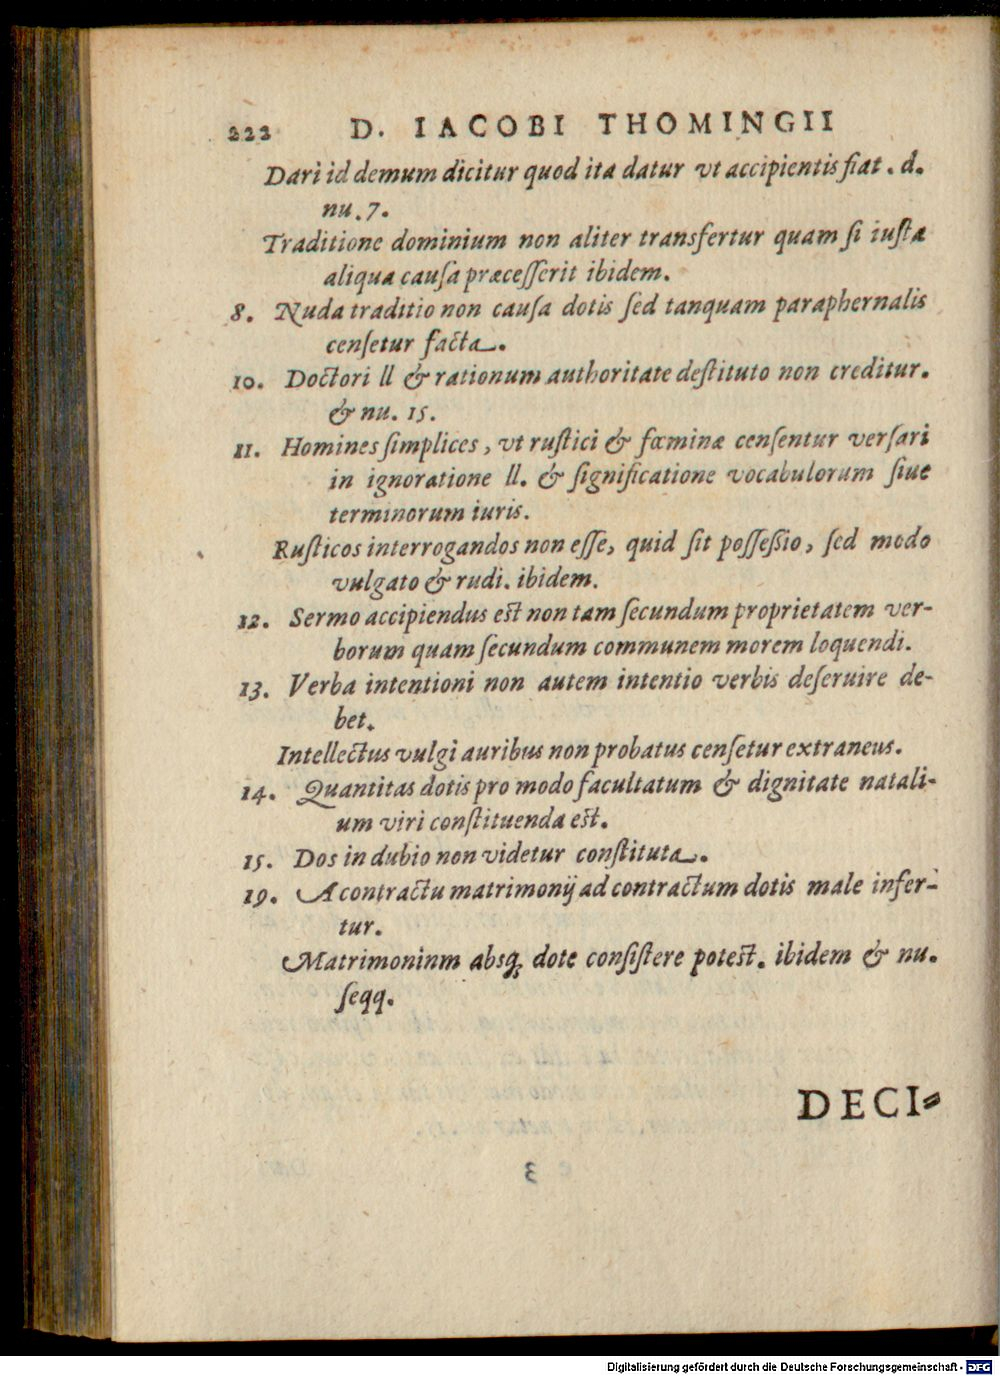 222 D. IACOBI THOMINGII
Dari id demum dicitur quod ita datur vt accipientis fiat. d.
nu. 7.
Traditione dominium non aliter transfertur quam si iusta
aliqua causa præcesserit ibidem.
8. Nuda traditio non causa dotis sed tanquam paraphernalis
censetur facta.
10. Doctori ll & rationum authoritate destituto non creditur.
& nu. 15.
11. Homines simplices, vt rustici & fœminæ censentur versari
in ignoratione ll. & significatione vocabulorum siue
terminorum iuris.
Rusticos interrogandos non esse, quid sit possessio, sed modo
vulgato & rudi. ibidem.
12. Sermo accipiendus est non tam secundum proprietatem ver-
borum quam secundum communem morem loquendi.
13. Verba intentioni non autem intentio verbis deseruire de-
bet.
Intellectus vulgi auribus non probatus censetur extraneus.
14. Quantitas dotis pro modo facultatum & dignitate natali-
um viri constituenda est.
15. Dos in dubio non videtur constituta.
19. A contractu matrimonij ad contractum dotis male infer-
tur.
Matrimoninm absq; dote consistere potest. ibidem & nu.
seqq.
DECI-
Digitalisierung gefördert durch die Deutsche Forschungsgemeinschaft - DFG